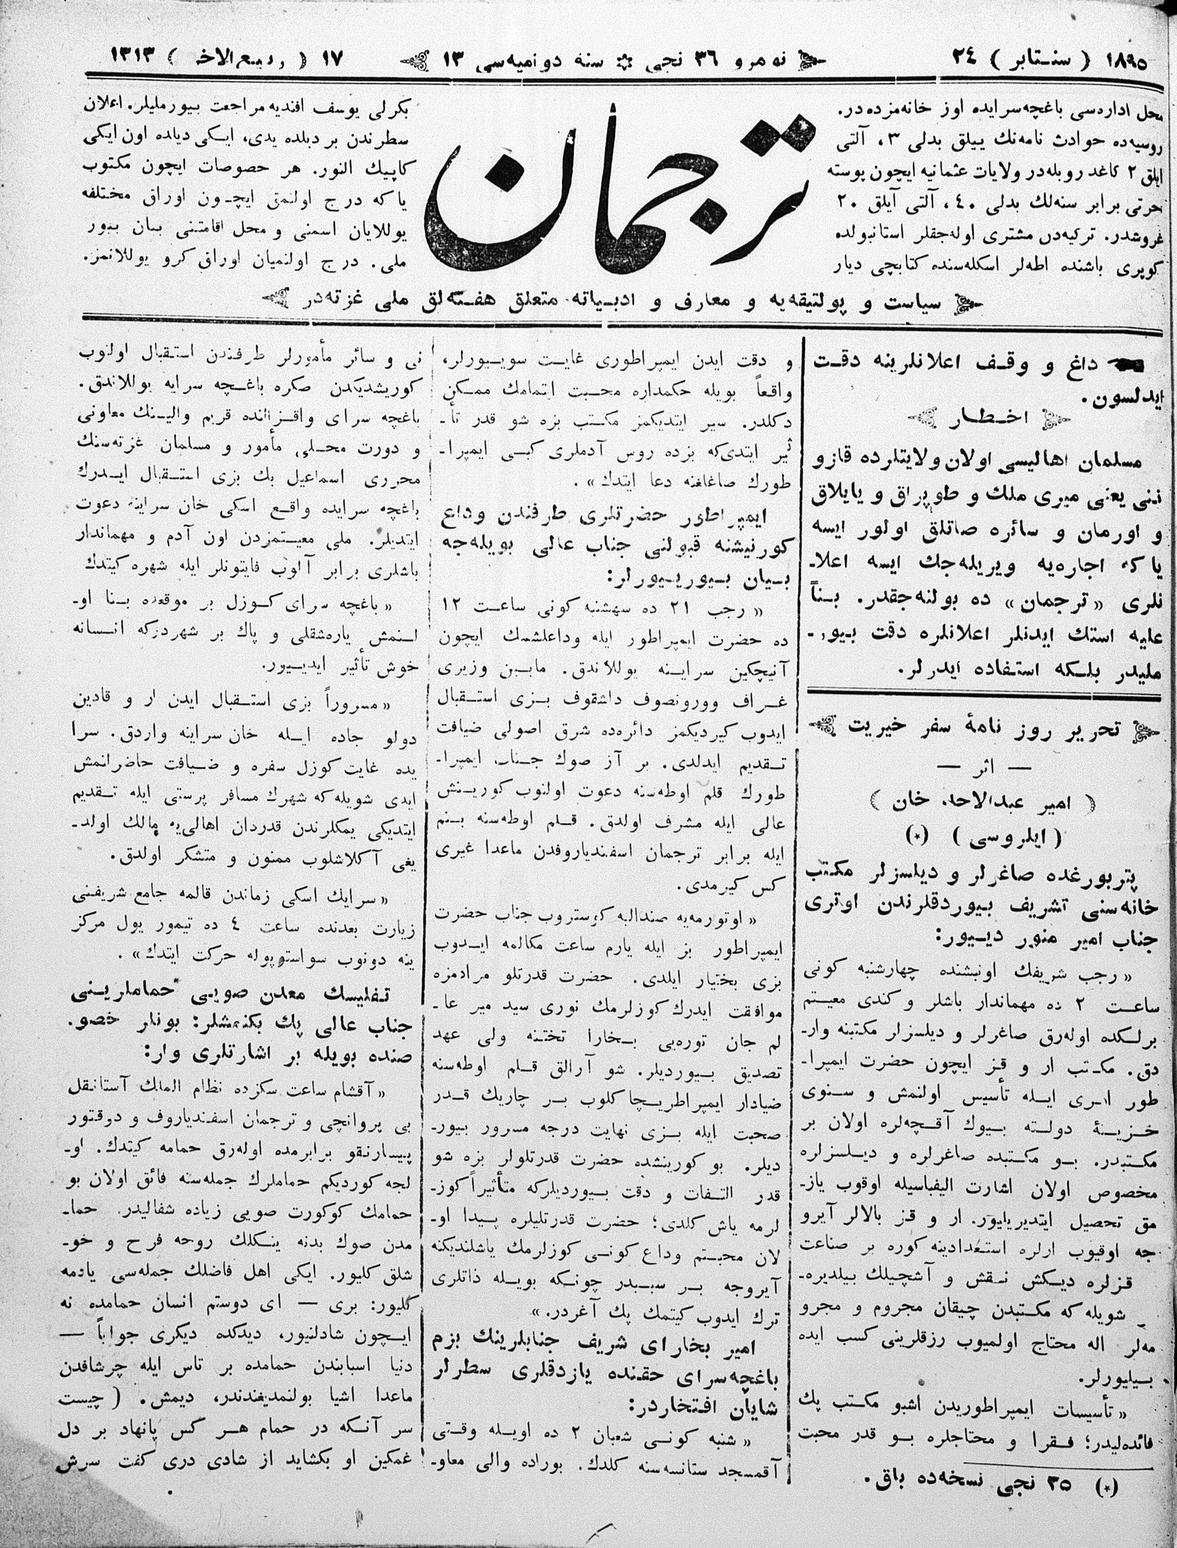 ١٨٩٥ ( سنتابر ) ٢٤
نومرو ٣٦ نجی ۞ سنه دوامیه‌سی ١٣
١٧ ( ربیع‌الاخر ) ١٣١٣
محل اداره‌سی باغچه‌سرایده اوز خانه‌مزده‌در.
روسیه‌ده حوادث نامه‌نك ییللق بدلی ٣، آلتی
ایلق ٢ کاغد روبله‌در ولایات عثمانیه ایچون پوسته
اجرتی برابر سنه‌لك بدلی ٤٠، آلتی آیلق ٢٠
غروشدر. ترکیه‌دن مشتری اوله‌جقلر استانبولده
کوپری باشنده اطه‌لر اسکله‌سنده کتابچی دیار
ترجمان
بکرلی یوسف افندیه مراجعت بیورملیلر. اعلان
سطرندن بر دیلده یدی، ایکی دیلده اون ایکی
کاپیك النور. هر خصوصات ایچون مکتوب
یا که درج اولنمق ایچون اوراق مختلفه
یوللایان اسمنی و محل اقامتنی بیان بیور
ملی. درج اولنمیان اوراق کرو یوللانمز.
سیاست و پولتیقه‌یه و معارف و ادبیاته متعلق هفته‌لق ملی غزته‌در
داغ و وقف اعلانلرینه دقت
ایدلسون.
اخطار
مسلمان اهالیسی اولان ولایتلرده قازو
ننی یعنی میری ملك و طوپراق و یایلاق
و اورمان و سائره صاتلق اولور ایسه
یا که اجاره‌یه ویریله‌جك ایسه اعلا-
نلری «ترجمان» ده بولنه‌جقدر. بناً
علیه استك ایدنلر اعلانلره دقت بیور-
ملیدر بلکه استفاده ایدرلر.
تحریر روز نامهٔ سفر خیریت
— اثر —
( امیر عبدالاحد خان )
( ایلروسی ) (٭)
پتربورغده صاغرلر و دیلسزلر مکتب
خانه‌سنی تشریف بیوردقلرندن اوتری
جناب امیر منور دییور:
« رجب شریفك اونبشنده چهارشنبه کونی
ساعت ٢ ده مهماندار باشلر و کندی معیتم
برلکده اوله‌رق صاغرلر و دیلسزلر مکتبنه وار-
دق. مکتب ار و قز ایچون حضرت ایمپرا-
طور امری ایله تأسیس اولنمش و سنوی
خزینهٔ دولته بیوك آقچه‌لره اولان بر
مکتبدر. بو مکتبده صاغرلره و دیلسزلره
مخصوص اولان اشارت الیفباسیله اوقوب یاز-
مق تحصیل ایتدیریلیور. ار و قز بالالر آیرو
جه اوقیوب ارلره استعدادینه کوره بر صناعت
قزلره دیکش نقش و آشچیلك بیلدیره-
شویله که مکتبدن چیقان محروم و محرو
مه‌لر اله محتاج اولمیوب رزقلرینی کسب ایده
بیلیورلر.
« تأسیسات ایمپراطوریدن اشبو مکتب پك
فائده‌لیدر؛ فقرا و محتاجلره بو قدر محبت
(٭) ٣٥ نجی نسخه‌ده باق.
و دقت ایدن ایمپراطوری غایت سویيورلر،
واقعاً بویله حکمداره محبت ایتمامك ممکن
دکلدر. سیر ایتدیکمز مکتب بزه شو قدر تأ-
ثیر ایتدی‌که بزده روس آدملری کبی ایمپرا-
طورك صاغلغنه دعا ایتدك».
ایمپراطور حضرتلری طرفندن وداع
کورنیشنه قبولنی جناب عالی بویله‌جه
بیان بیوریيورلر:
« رجب ٢١ ده سه‌شنبه کونی ساعت ١٢
ده حضرت ایمپراطور ایله وداعلشمك ایچون
آنیچکین سراینه یوللاندق. مابین وزیری
غراف وورونصوف داشقوف بزی استقبال
ایدوب کیردیکمز دائره‌ده شرق اصولی ضیافت
تقدیم ایدلدی. بر آز صوك جناب ایمپرا-
طورك قلم اوطه‌سنه دعوت اولنوب کورینش
عالی ایله مشرف اولدق. قلم اوطه‌سنه بنم
ایله برابر ترجمان اسفندیاروفدن ماعدا غیری
کس کیرمدی.
« اوتورمه‌یه صندالیه کوستروب جناب حضرت
ایمپراطور بز ایله یارم ساعت مکالمه ایدوب
بزی بختیار ایلدی. حضرت قدرتلو مرادمزه
موافقت ایدرك کوزلرمك نوری سید میر عا-
لم جان توره‌یی بخارا تختنه ولی عهد
تصدیق بیوردیلر. شو آرالق قلم اوطه‌سنه
ضیادار ایمپراطریچا کلوب بر چاریك قدر
صحبت ایله بزی نهایت درجه مسرور بیور-
دیلر. بو کورینشده حضرت قدرتلولر بزه شو
قدر التفات و دقت بیوردیلرکه متأثیراً کوز-
لرمه یاش کلدی؛ حضرت قدرتلیلره پیدا او-
لان محبتم وداع کونی کوزلرمك یاشلندیکنه
آیروجه بر سببدر چونکه بویله ذاتلری
ترك ایدوب کیتمك پك آغردر.»
امیر بخارای شریف جنابلرینك بزم
باغچه‌سرای حقنده یازدقلری سطرلر
شایان افتخاردر:
« شنبه کونی شعبان ٢ ده اویله وقتی
آقمسجد ستانسه‌سنه کلدك. بوراده والی معاو-
نی و سائر مأمورلر طرفندن استقبال اولنوب
کوریشدیکدن صکره باغچه سرایه یوللاندق.
باغچه سرای واقزالنده قریم والینك معاونی
و دورت محلی مأمور و مسلمان غزته‌سنك
محرری اسماعیل بك بزی استقبال ایدرك
باغچه سرایده واقع اسکی خان سراینه دعوت
ایتدیلر. ملی معیتمزدن اون آدم و مهماندار
باشلری برابر آلوب فایتونلر ایله شهره کیتدك
« باغچه سرای کوزل بر موقعده بنا او-
لنمش یاره‌شقلی و پاك بر شهردرکه انسانه
خوش تأثیر ایدیيور.
« مسروراً بزی استقبال ایدن ار و قادین
دولو جاده ایله خان سراینه واردق. سرا
یده غایت کوزل سفره و ضیافت حاضرلنمش
ایدی شویله که شهرك مسافر پرستی ایله تقدیم
ایتدیکی یمکلرندن قدردان اهالی‌یه مالك اولد-
یغی آکلاشلوب ممنون و متشکر اولدق.
« سرایك اسکی زماندن قالمه جامع شریفنی
زیارت بعدنده ساعت ٤ ده تیمور یول مرکز
ینه دونوب سواستوپوله حرکت ایتدك».
تفلیسك معدن صویی حماملرینی
جناب عالی پك بکنمشلر: بونلر خصو-
صنده بویله بر اشارتلری وار:
« آقشام ساعت سکزده نظام الملك آستانقل
بی پروانچی و ترجمان اسفندیاروف و دوقتور
پیسارنقو برابرمده اوله‌رق حمامه کیتدك. او-
لجه کوردیکم حماملرك جمله‌سنه فائق اولان بو
حمامك کوکورت صویی زیاده شفالیدر. حما-
مدن صوك بدنه ینکلك روحه فرح و خو-
شلق کلیور. ایکی اهل فاضلك جمله‌سی یادمه
کلیور: بری — ای دوستم انسان حمامده نه
ایچون شادلنیور، دیدکده دیکری جواباً —
دنیا اسبابندن حمامده بر تاس ایله چرشافدن
ماعدا اشیا بولنمدیغندندر، دیمش. (چیست
سر آنکه در حمام هر کس پانهاد بر دل
غمکین او بکشاید از شادی دری کفت سرش